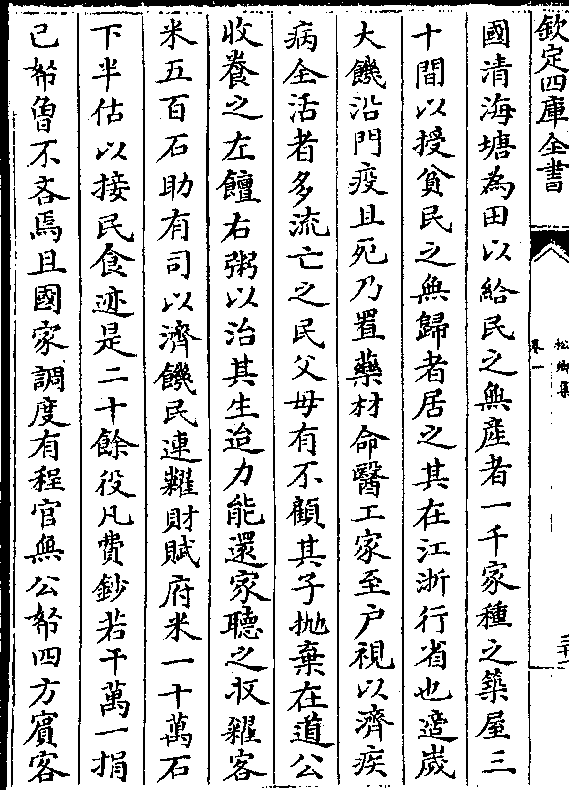 欽定四庫全書
松鄉集
卷一
國清海塘為田以給民之無產者一千家種之築屋三
十間以授貧民之無歸者居之其在江浙行省也適歲
大饑沿門疫且死乃置藥材命醫工家至户視以濟疾
病全活者多流亡之民父母有不顧其子抛棄在道公
收養之左饘右粥以治其生迨力能還家聽之收糴客
米五百石助有司以濟饑民連糴財賦府米一十萬石
下半估以接民食迹是二十餘役凡費鈔若干萬一捐
己帑曾不吝焉且國家調度有程官無公帑四方賓客